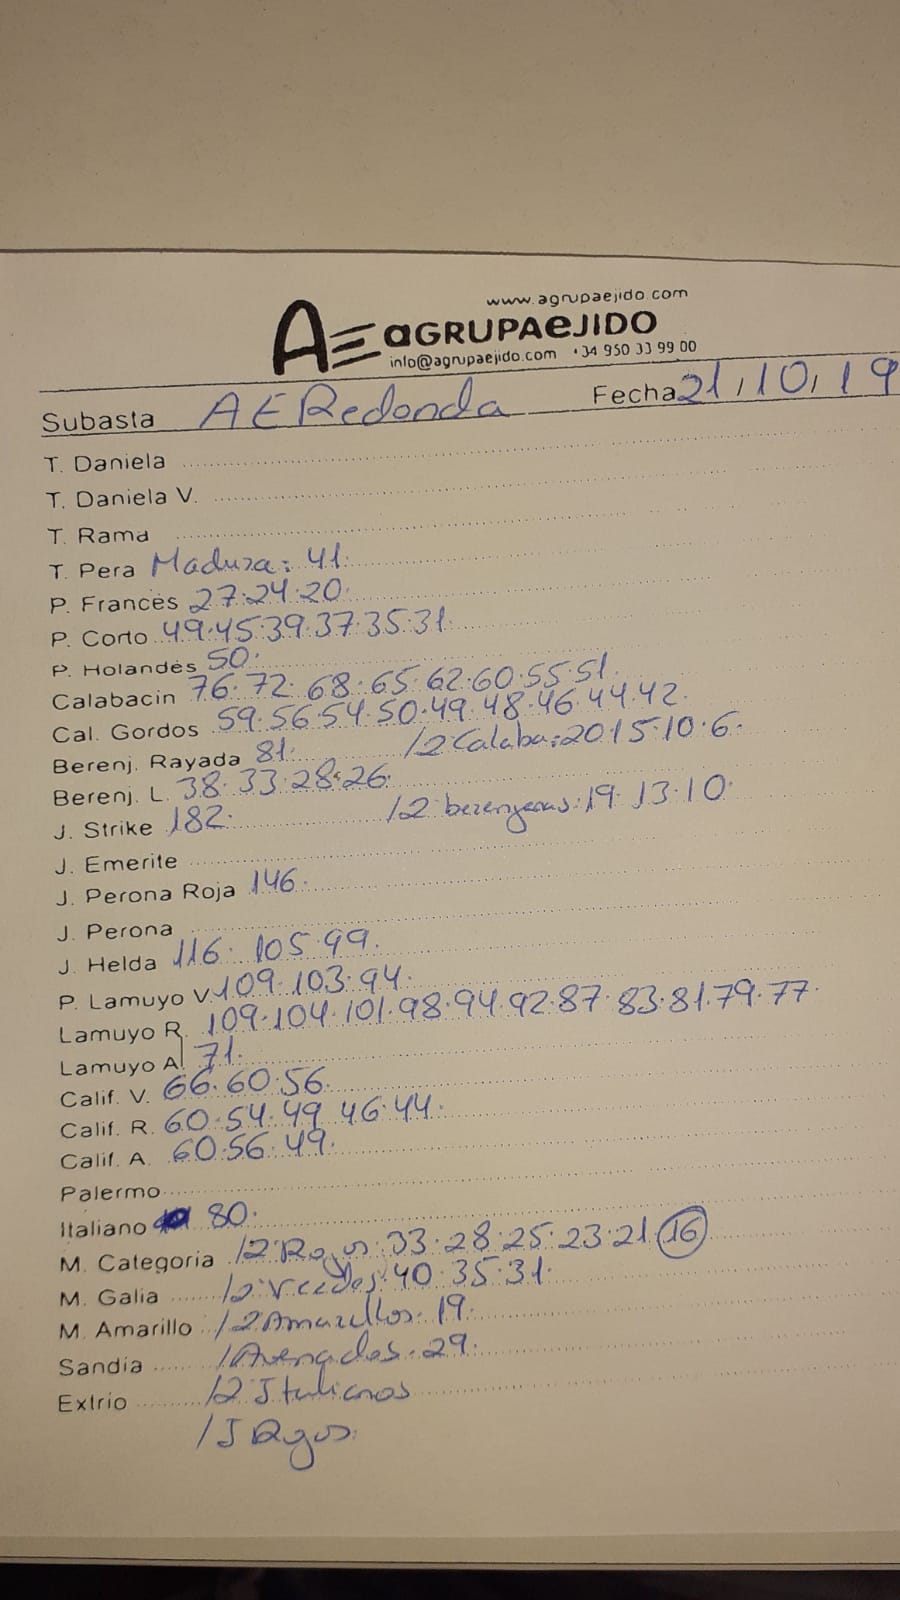 www.agrupaejido.com
AE aGRUPAeJIDO
info@agrupaejido.com +34 950 33 99 00
Subasta AERedonda Fecha 21,10,19
T. Daniela
T. Daniela V.
T. Rama
T. Pera Madura: 41.
P. Francés 27·24·20.
P. Corto 49·45·39·37·35·31.
P. Holandés 50.
Calabacin 76·72·68·65·62·60·55·51.
Cal. Gordos 59·56·54·50·49·48·46·44·42.
Berenj. Rayada 81. /2 Calaba:20·15·10·6.
Berenj. L. 38·33·28·26.
J. Strike 182. /2 berenjenas:19·13·10.
J. Emerite
J. Perona Roja 146.
J. Perona
J. Helda 116·105·99.
P. Lamuyo V 109·103·94.
Lamuyo R. 109·104·101·98·94·92·87·83·81·79·77.
Lamuyo A 71.
Calif. V. 66·60·56.
Calif. R. 60·54·49·46·44.
Calif. A. 60·56·49.
Palermo
Italiano 80.
M. Categoria /2 Rojos:33·28·25·23·21·16
M. Galia /2 Verdes:40·35·31.
M. Amarillo /2 Amarillos·19.
Sandia ·29.
Extrio /2 Italianos